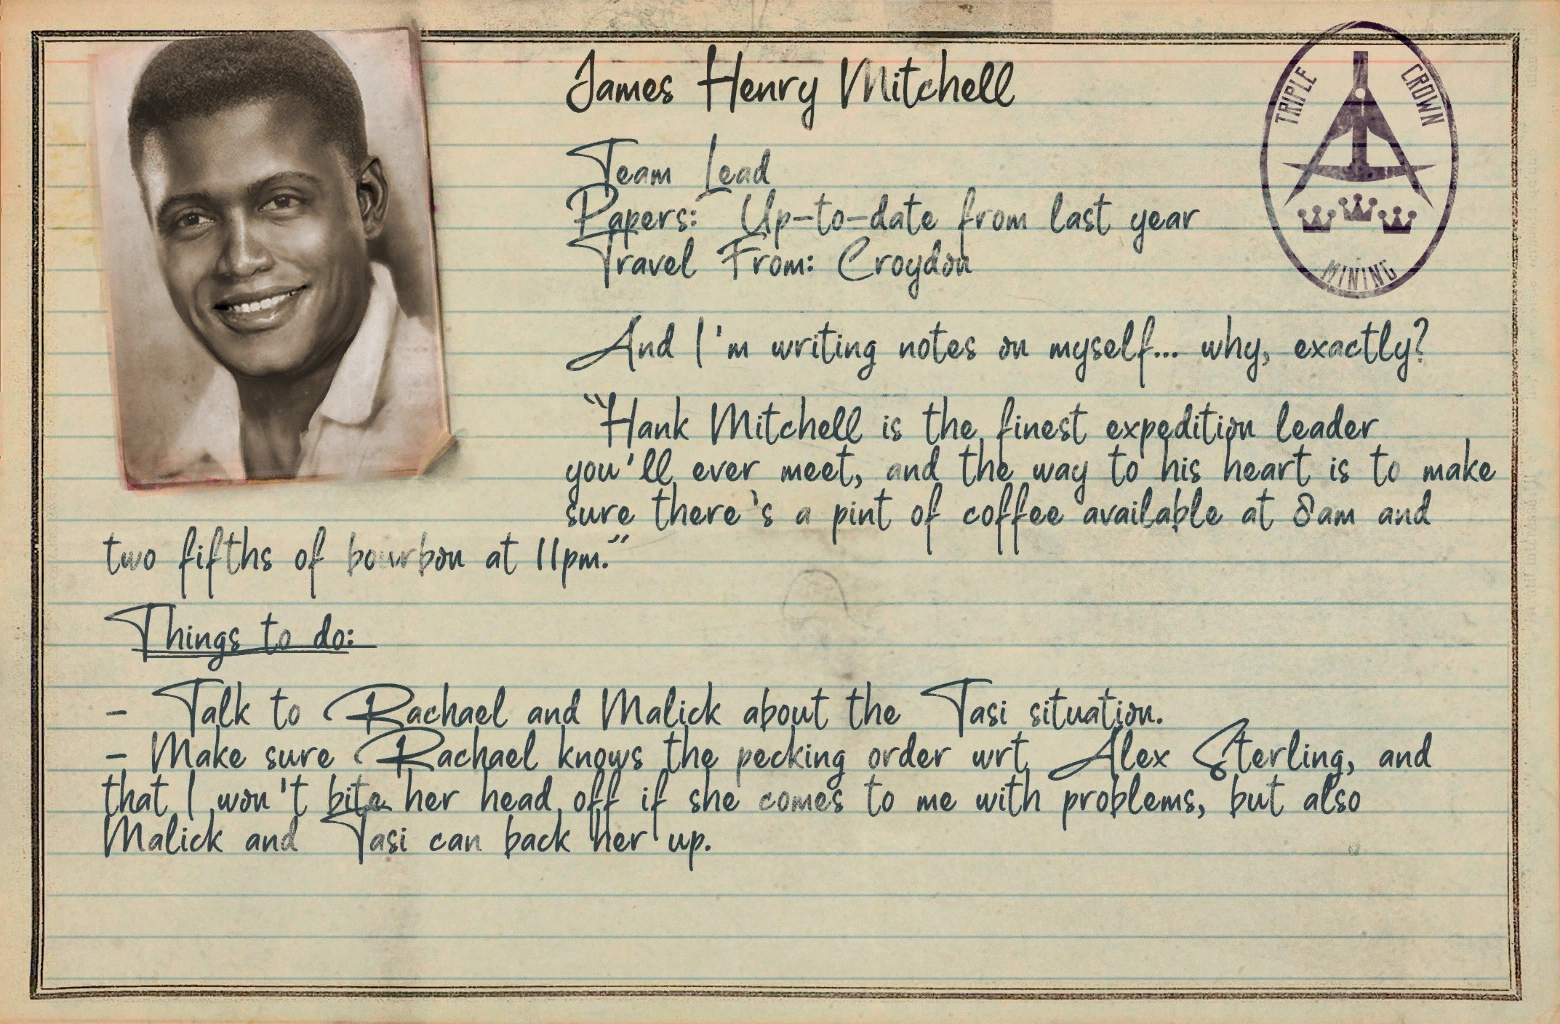 James Henry Mitchell
TRIPLE CROWN
MINING
Team Lead
Papers: Up-to-date from last year
Travel From: Croydon
And I'm writing notes on myself... why, exactly?
"Hank Mitchell is the finest expedition leader
you'll ever meet, and the way to his heart is to make
sure there's a pint of coffee available at 8am and
two fifths of bourbon at 11pm."
Things to do:
- Talk to Rachael and Malick about the Tasi situation.
- Make sure Rachael knows the pecking order wrt Alex Sterling, and
that I won't bite her head off if she comes to me with problems, but also
Malick and Tasi can back her up.